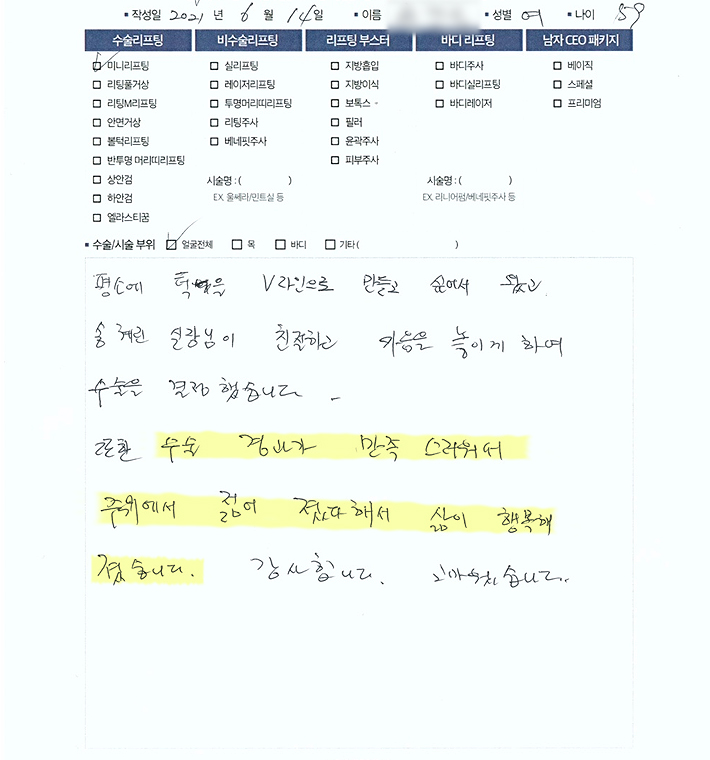 ▪ 작성일 2021 년 6 월 14 일 ▪ 이름 ▪ 성별 여 ▪ 나이 59
수술리프팅 비수술리프팅 리프팅 부스터 바디 리프팅 남자 CEO 패키지
미니리프팅 실리프팅 지방흡입 바디주사 베이직
리팅풀거상 레이저리프팅 지방이식 바디실리프팅 스페셜
리팅M리프팅 투명머리띠리프팅 보톡스 바디레이저 프리미엄
안면거상 리팅주사 필러
볼턱리프팅 베네핏주사 윤곽주사
반투명 머리띠리프팅 피부주사
상안검 시술명 : ( ) 시술명 : ( )
하안검 EX. 울쎄라/민트실 등 EX. 리니어펌/베네핏주사 등
엘라스티꿈
▪ 수술/시술 부위 얼굴전체 목 바디 기타 ( )
평소에 턱선을 V라인으로 만들고 싶어서 왔고
송혜린 실장님이 친절하고 마음을 놓이게 하여
수술을 결정했습니다.
또한 수술 경과가 만족 스러워서
주위에서 젊어 졌다해서 삶이 행복해
졌습니다. 감사합니다. 고마웠습니다.